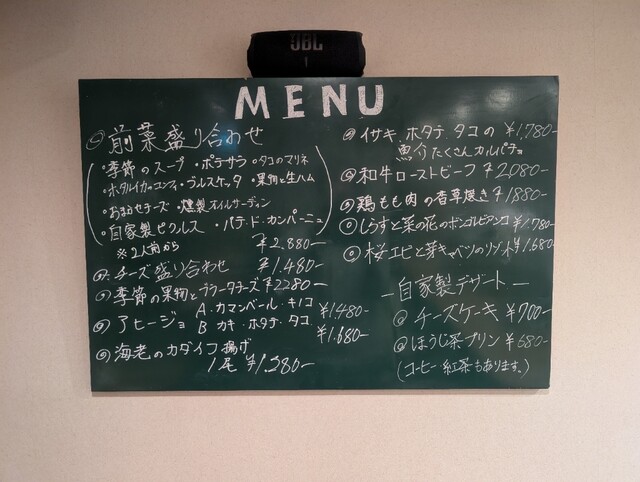 JBL
MENU
◎前菜盛り合わせ
・季節のスープ ・ポテサラ ・タコのマリネ
・ホタルイカのコンフィ ・ブルスケッタ ・果物と生ハム
・おまかせチーズ ・燻製オイルサーディン
・自家製ピクルス ・パテ・ド・カンパーニュ
※2人前から ¥2,880-
◎チーズ盛り合わせ ¥1,480-
◎季節の果物とブラータチーズ ¥2280-
◎アヒージョ A.カマンベール・キノコ ¥1480-
B カキ・ホタテ・タコ ¥1,680-
◎海老のカダイフ揚げ
1尾 ¥1,280-
◎イサキ、ホタテ、タコの ¥1,780-
魚介たくさんカルパチョ
◎和牛ローストビーフ ¥2,080-
◎鶏もも肉の香草焼き ¥1880-
◎しらすと菜の花のボンゴレビアンコ ¥1,780-
◎桜エビと芽キャベツのリゾット ¥1,680-
―自家製デザート―
◎チーズケーキ ¥700-
◎ほうじ茶プリン ¥680-
(コーヒー 紅茶もあります。)